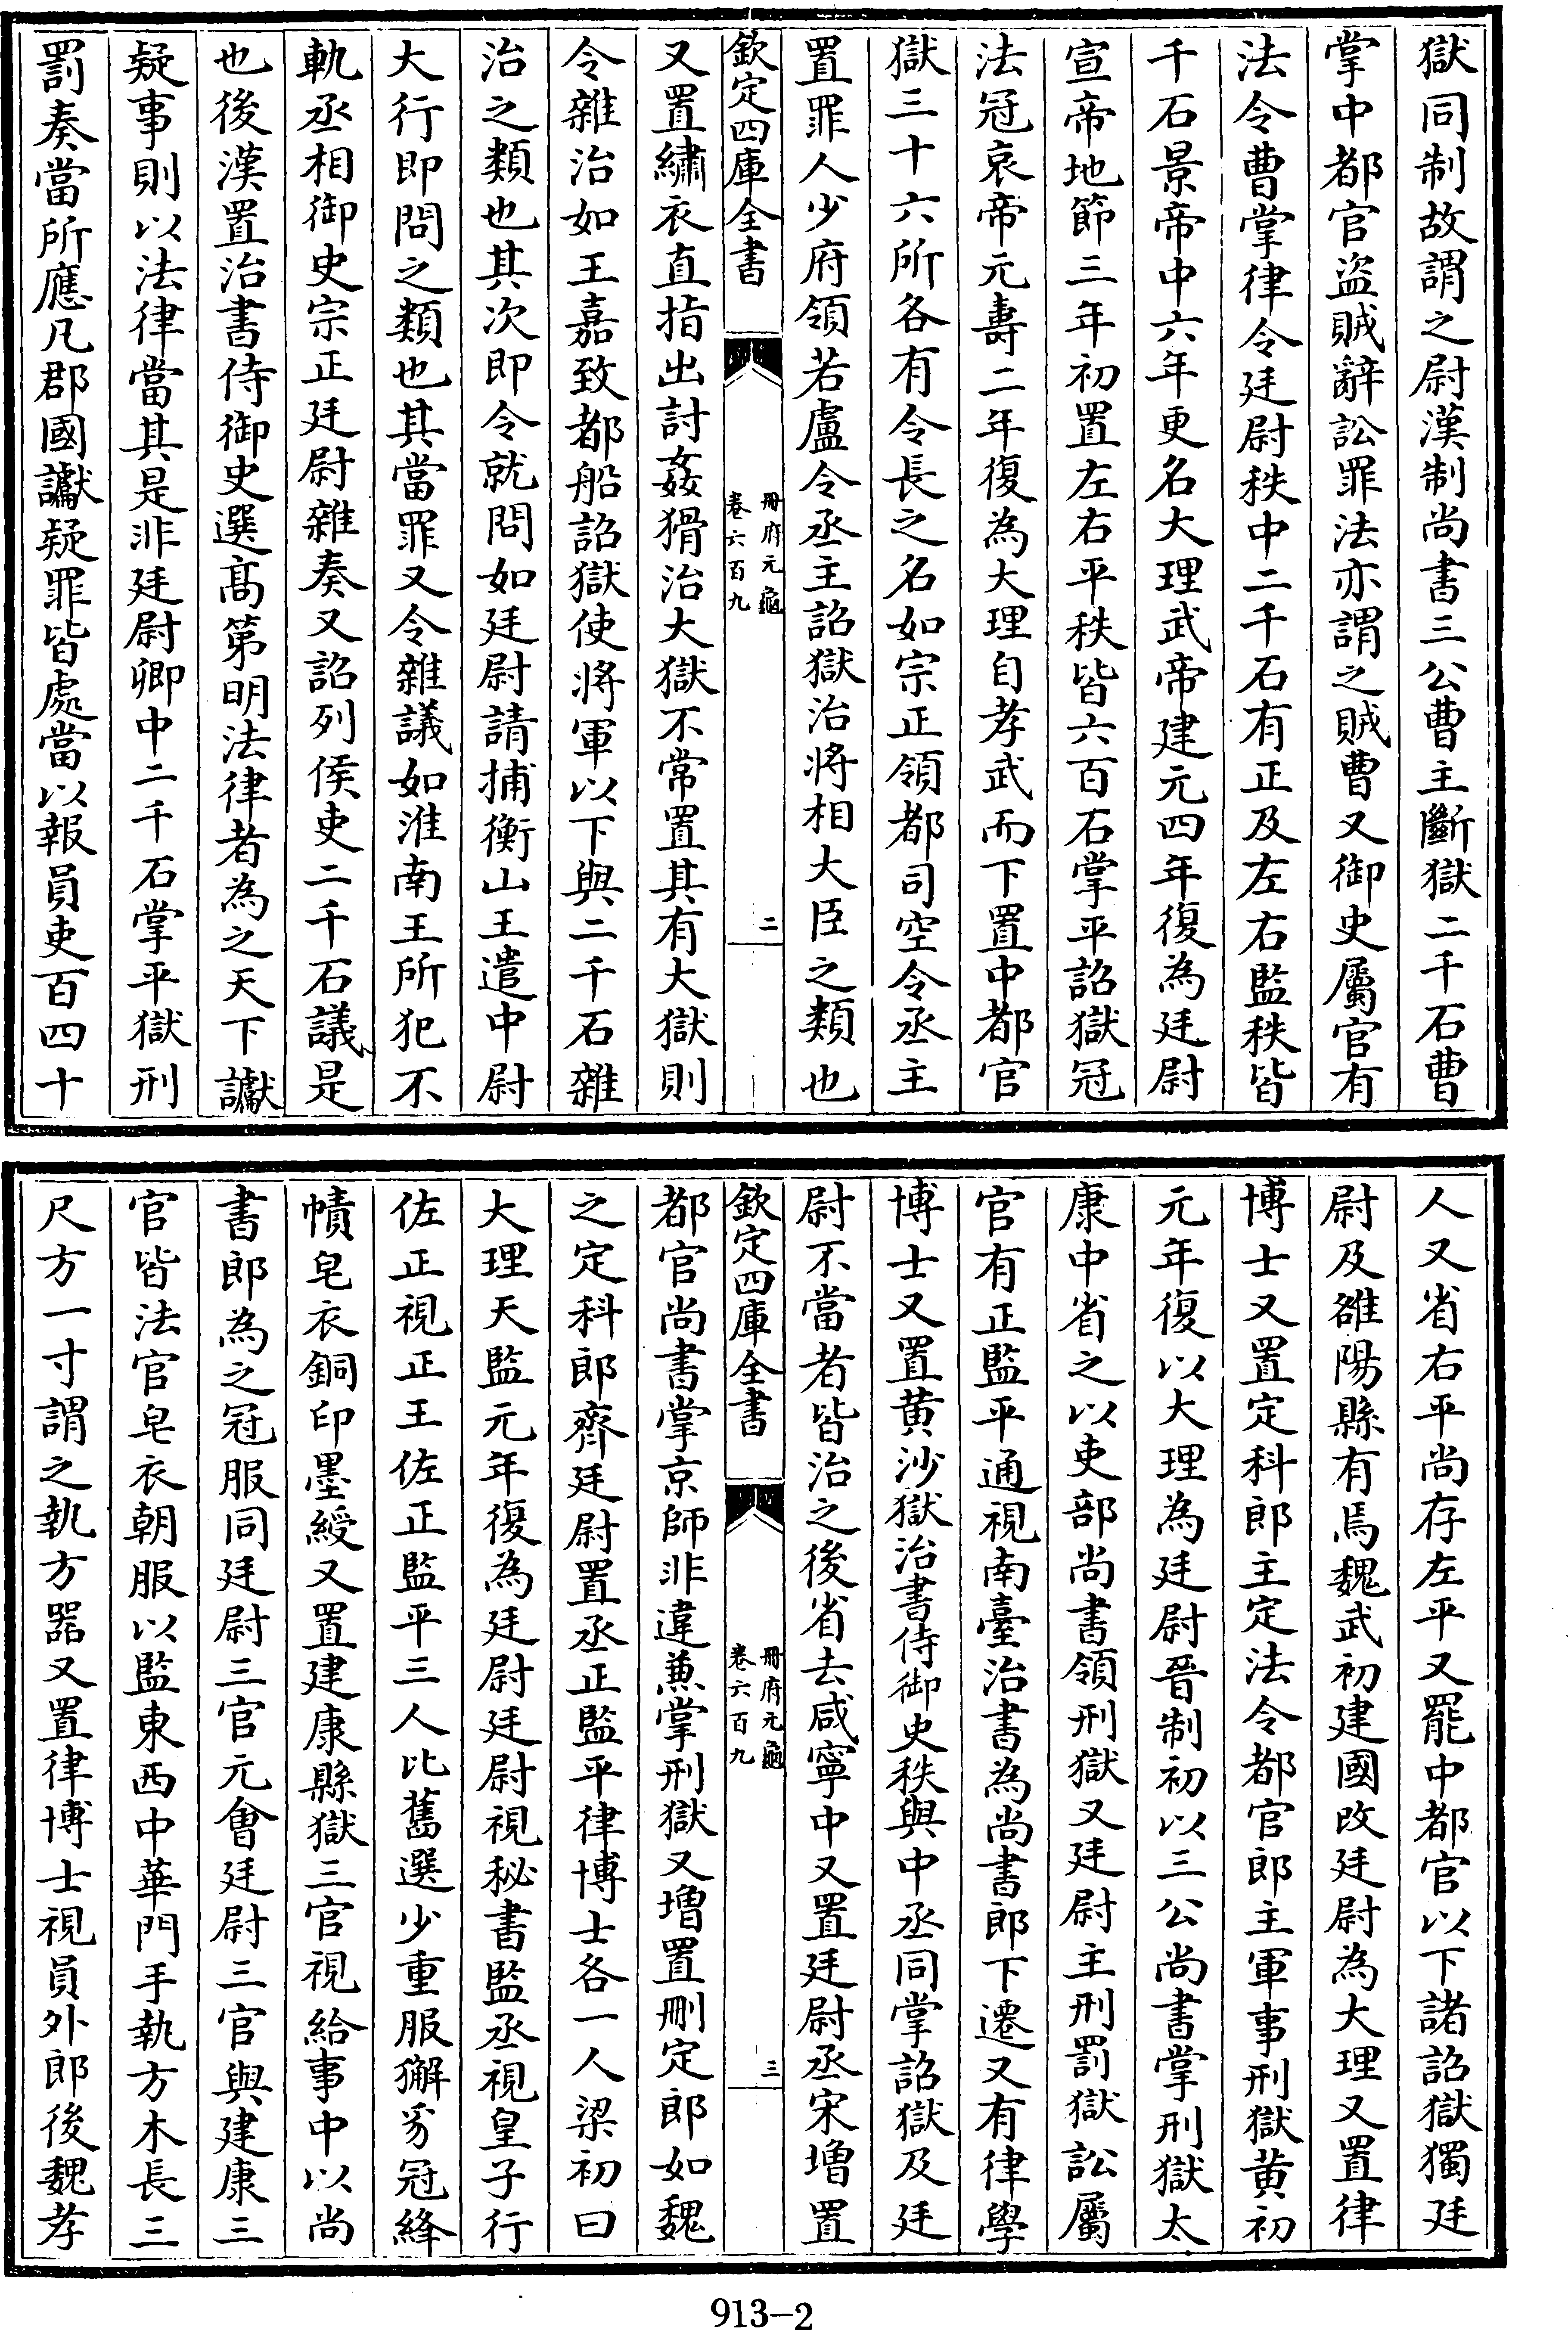 獄同制故謂之尉漢制尚書三公曹主斷獄二千石曹
掌中都官盜賊辭訟罪法亦謂之賊曹又御史屬官有
法令曹掌律令廷尉秩中二千石有正及左右監秩皆
千石景帝中六年更名大理武帝建元四年復為廷尉
宣帝地節三年初置左右平秩皆六百石掌平詔獄冠
法冠哀帝元壽二年復為大理自孝武而下置中都官
獄三十六所各有令長之名如宗正領都司空令丞主
置罪人少府領若盧令丞主詔獄治將相大臣之類也
欽定四庫全書
冊府元龜
卷六百九
二
又置繡衣直指出討姦猾治大獄不常置其有大獄則
令雜治如王嘉致都船詔獄使將軍以下與二千石雜
治之類也其次即令就問如廷尉請捕衡山王遣中尉
大行即問之類也其當罪又令雜議如淮南王所犯不
軌丞相御史宗正廷尉雜奏又詔列侯吏二千石議是
也後漢置治書侍御史選髙第明法律者為之天下讞
疑事則以法律當其是非廷尉卿中二千石掌平獄刑
罰奏當所應凡郡國讞疑罪皆處當以報員吏百四十
人又省右平尚存左平又罷中都官以下諸詔獄獨廷
尉及雒陽縣有焉魏武初建國改廷尉為大理又置律
博士又置定科郎主定法令都官郎主軍事刑獄黄初
元年復以大理為廷尉晉制初以三公尚書掌刑獄太
康中省之以吏部尚書領刑獄又廷尉主刑罰獄訟屬
官有正監平通視南臺治書為尚書郎下遷又有律學
博士又置黄沙獄治書侍御史秩與中丞同掌詔獄及廷
尉不當者皆治之後省去咸寧中又置廷尉丞宋增置
欽定四庫全書
冊府元龜
卷六百九
三
都官尚書掌京師非違兼掌刑獄又增置刪定郎如魏
之定科郎齊廷尉置丞正監平律博士各一人梁初曰
大理天監元年復為廷尉廷尉視秘書監丞視皇子行
佐正視正王佐正監平三人比舊選少重服獬豸冠絳
幘皂衣銅印墨綬又置建康縣獄三官視給事中以尚
書郎為之冠服同廷尉三官元會廷尉三官與建康三
官皆法官皂衣朝服以監東西中華門手執方木長三
尺方一寸謂之執方器又置律博士視員外郎後魏孝
913-2